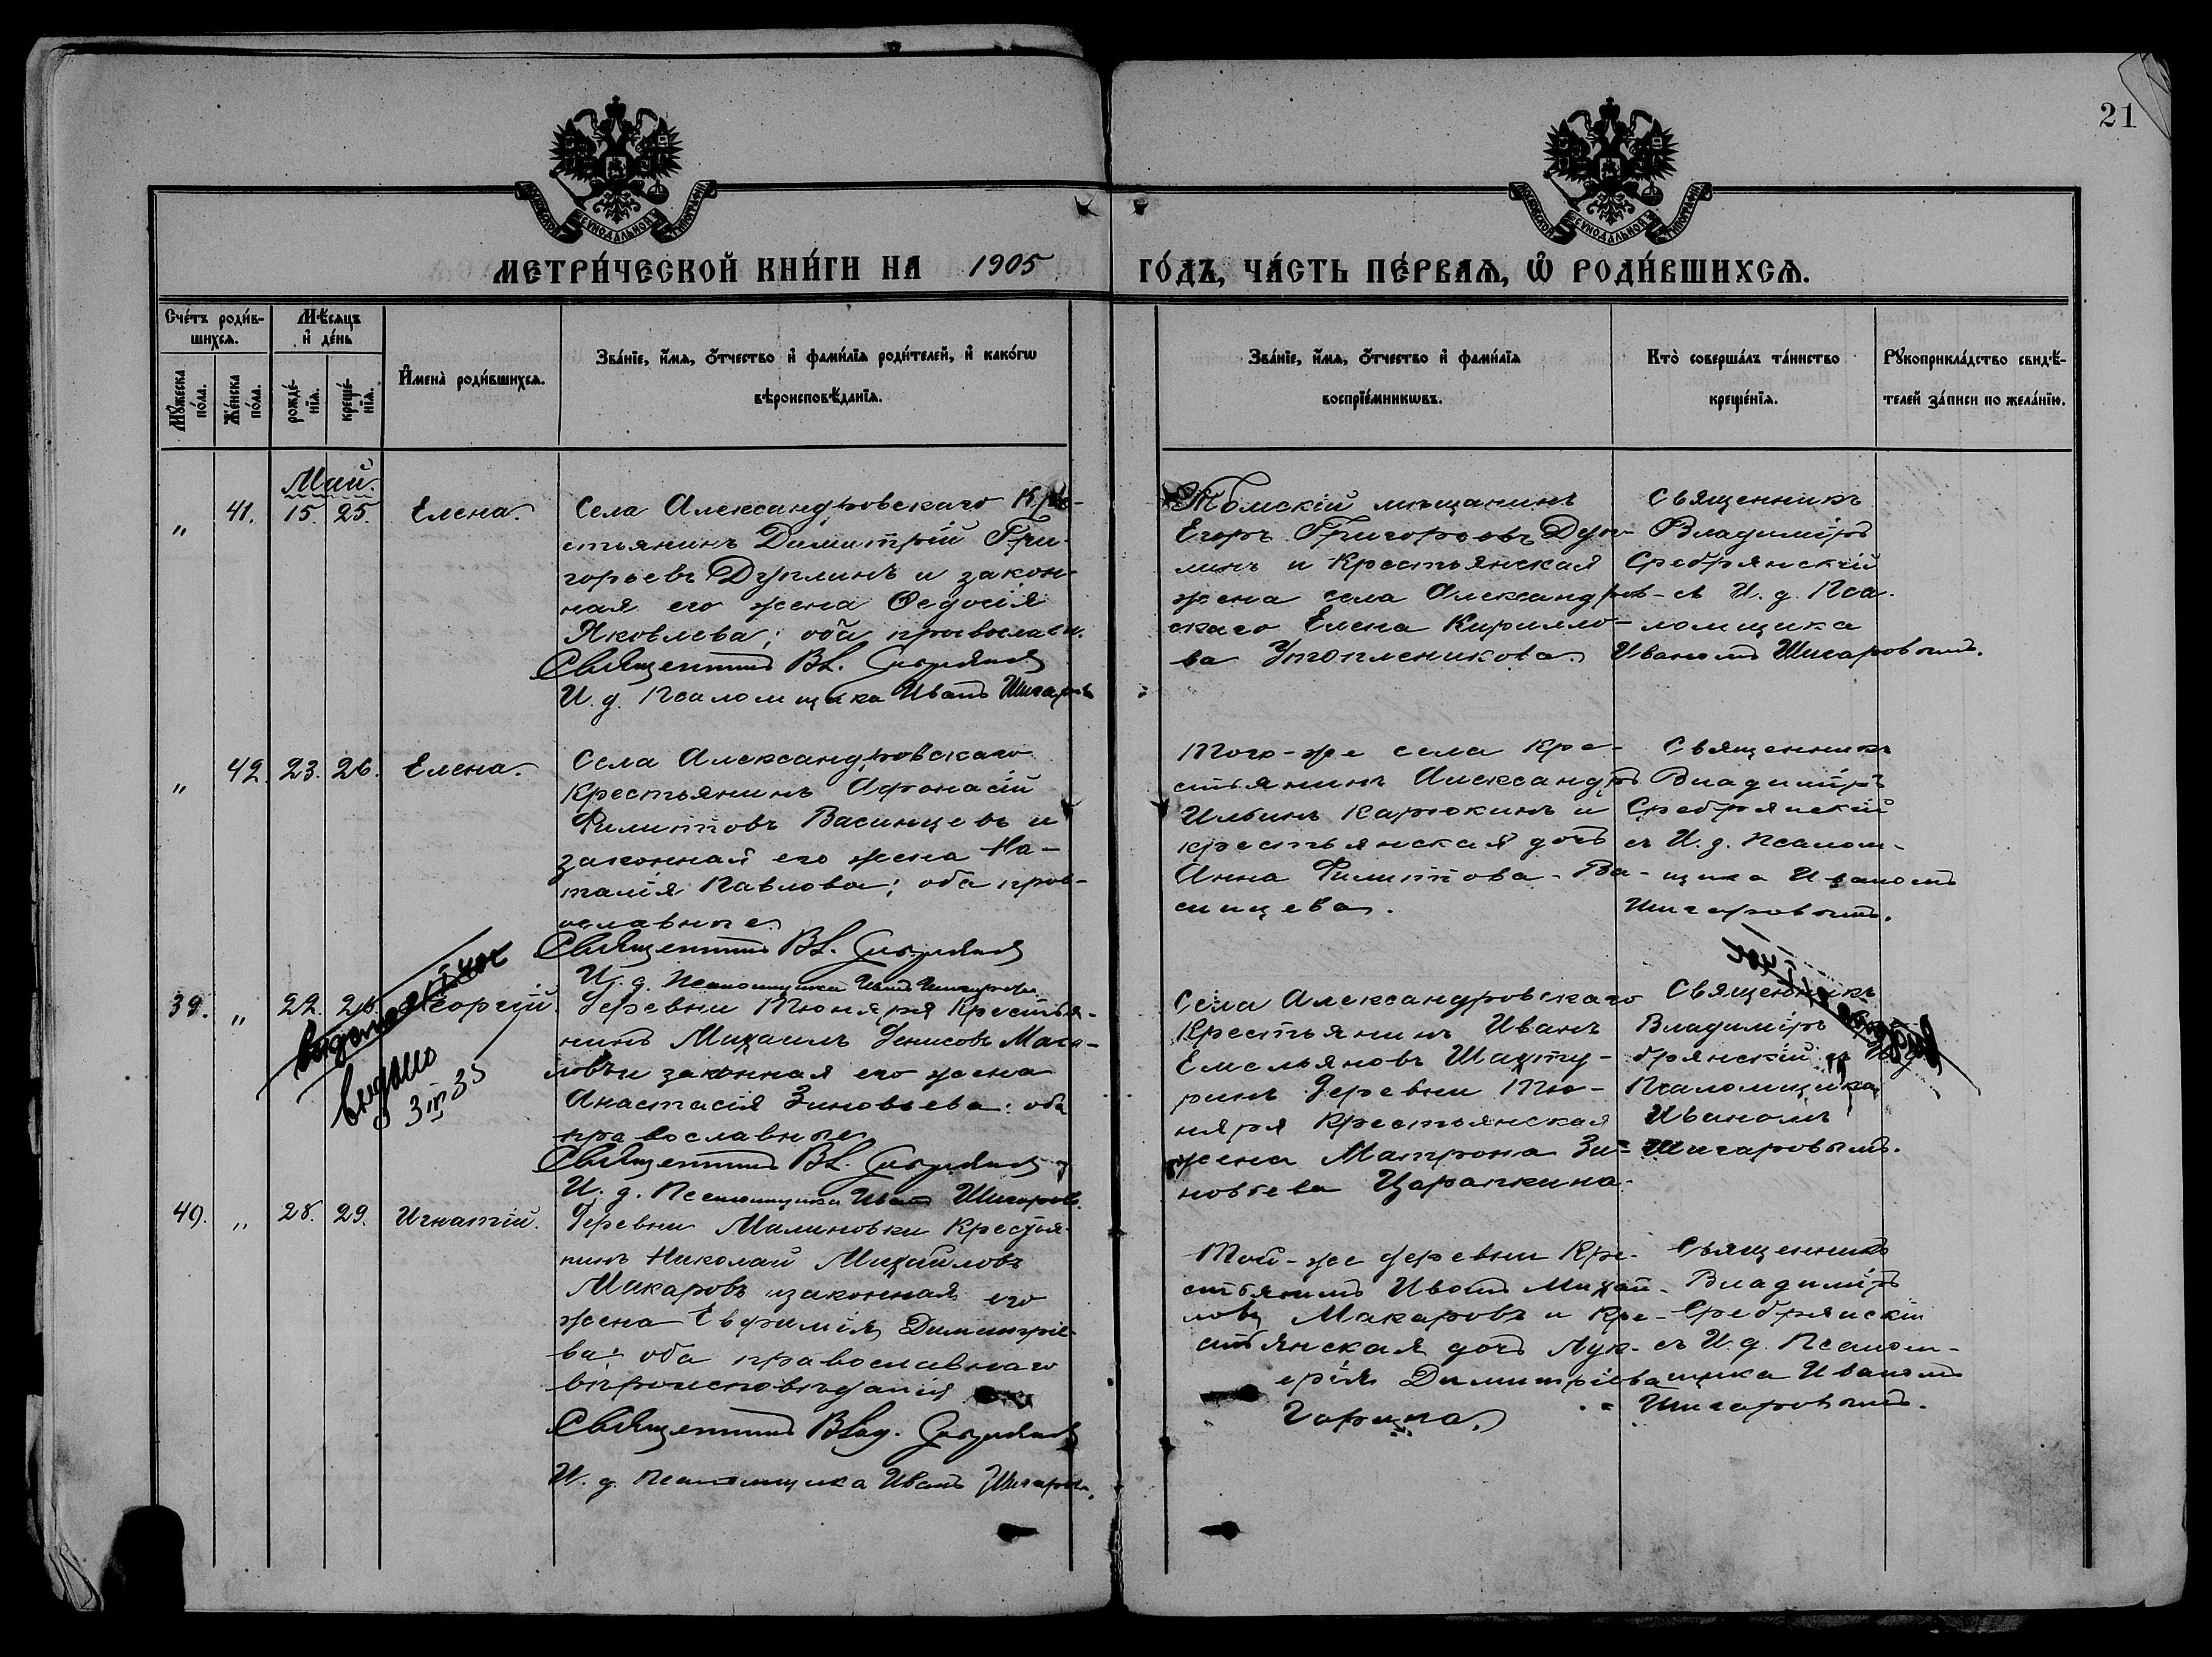 21
МОСКОВСКОЙ СѴНОДАЛЬНОЙ ТИПОГРАФІИ
МОСКОВСКОЙ СѴНОДАЛЬНОЙ ТИПОГРАФІИ
МЕТРИ́ЧЕСКОЙ КНИ́ГИ НА 1905 ГО́ДЪ, ЧА́СТЬ ПЕ́РВАѦ, Ѽ РОДИ́ВШИХСѦ.
Сче́тъ роди́в-
шихсѧ.
Мꙋ́жеска по́ла.
Же́нска по́ла.
Мѣ́сѧцъ
и҆ де́нь
рожде́-
нїѧ.
креще́-
нїѧ.
И҆мена̀ роди́вшихсѧ.
Зва́нїе, и҆́мѧ, ѻ҆́тчество и҆ фами́лїѧ роди́телей, и҆ како́гѡ
вѣроисповѣ́данїѧ.
Зва́нїе, и҆́мѧ, ѻ҆́тчество и҆ фами́лїѧ
воспрїе́мникѡвъ.
Кто̀ соверша́лъ та́инство
креще́нїѧ.
Рꙋкоприкла́дство свидѣ́-
телей за́писи по жела́нїю.
Май.
" 41. 15. 25. Елена.
Села Александровскаго Кре-
стьянинъ Димитрій Гри-
горьевъ Дуплинъ и закон-
ная его жена Ѳедосія
Яковлева; оба православн.
Священникъ Вл. Сребрянскій
И. д. Псаломщика Иванъ Шигаровъ
Томскій мѣщанинъ
Егоръ Григорьевъ Дуп-
линъ и крестьянская
жена села Александров-
скаго Елена Кирилло-
ва Утопленикова.
Священникъ
Владиміръ
Сребрянскій
съ И. д. Пса-
ломщика
Иваномъ Шигаровымъ.
" 42. 23. 26. Елена.
Села Александровскаго
крестьянинъ Афонасій
Филипповъ Васинцевъ и
законная его жена На-
талія Павлова; оба прав-
ославные
Священникъ Вл. Сребрянскій
И. д. Псаломщика Иванъ Шигаровъ
Того-же села кре-
стьянинъ Александръ
Ильинъ Карюкинъ и
крестьянская дочь
Анна Филиппова Ва-
синцева.
Священникъ
Владиміръ
Сребрянскій
съ И. д. Псалом-
щика Иваномъ
Шигаровымъ.
39. " 22. 26. Георгій.
выдано
3 III 35
Деревни Тюняря крестья-
нинъ Михаилъ Денисовъ
и законная его жена
Анастасія Зиновьева: оба
православные
Священникъ Вл. Сребрянскій
И. д. Псаломщика Иванъ Шигаровъ.
Села Александровскаго
Крестьянинъ Иванъ
Емельяновъ Шахту-
ринъ деревни Тю-
няря крестьянская
жена Матрона Зи-
новьева Царапкина.
Священникъ
Владиміръ
брянскій
Псаломщика
Иваномъ
Шигаровымъ.
40. " 28. 29. Игнатій.
Деревни Малиновки крестья-
нинъ Николай Михайловъ
Макаровъ и законная его
жена Евфимія Димитріе-
ва: оба православнаго
вѣроисповѣданія
Священникъ Влад. Сребрянскій
И. д. Псаломщика Иванъ Шигаровъ.
Той-же деревни кре-
стьянинъ Иванъ Михай-
ловъ Макаровъ и кре-
стьянская дочь Лук-
ерія Димитріева
Гарина.
Священникъ
Владиміръ
Сребрянскій
съ И. д. Псалом-
щика Иваномъ
Шигаровымъ.